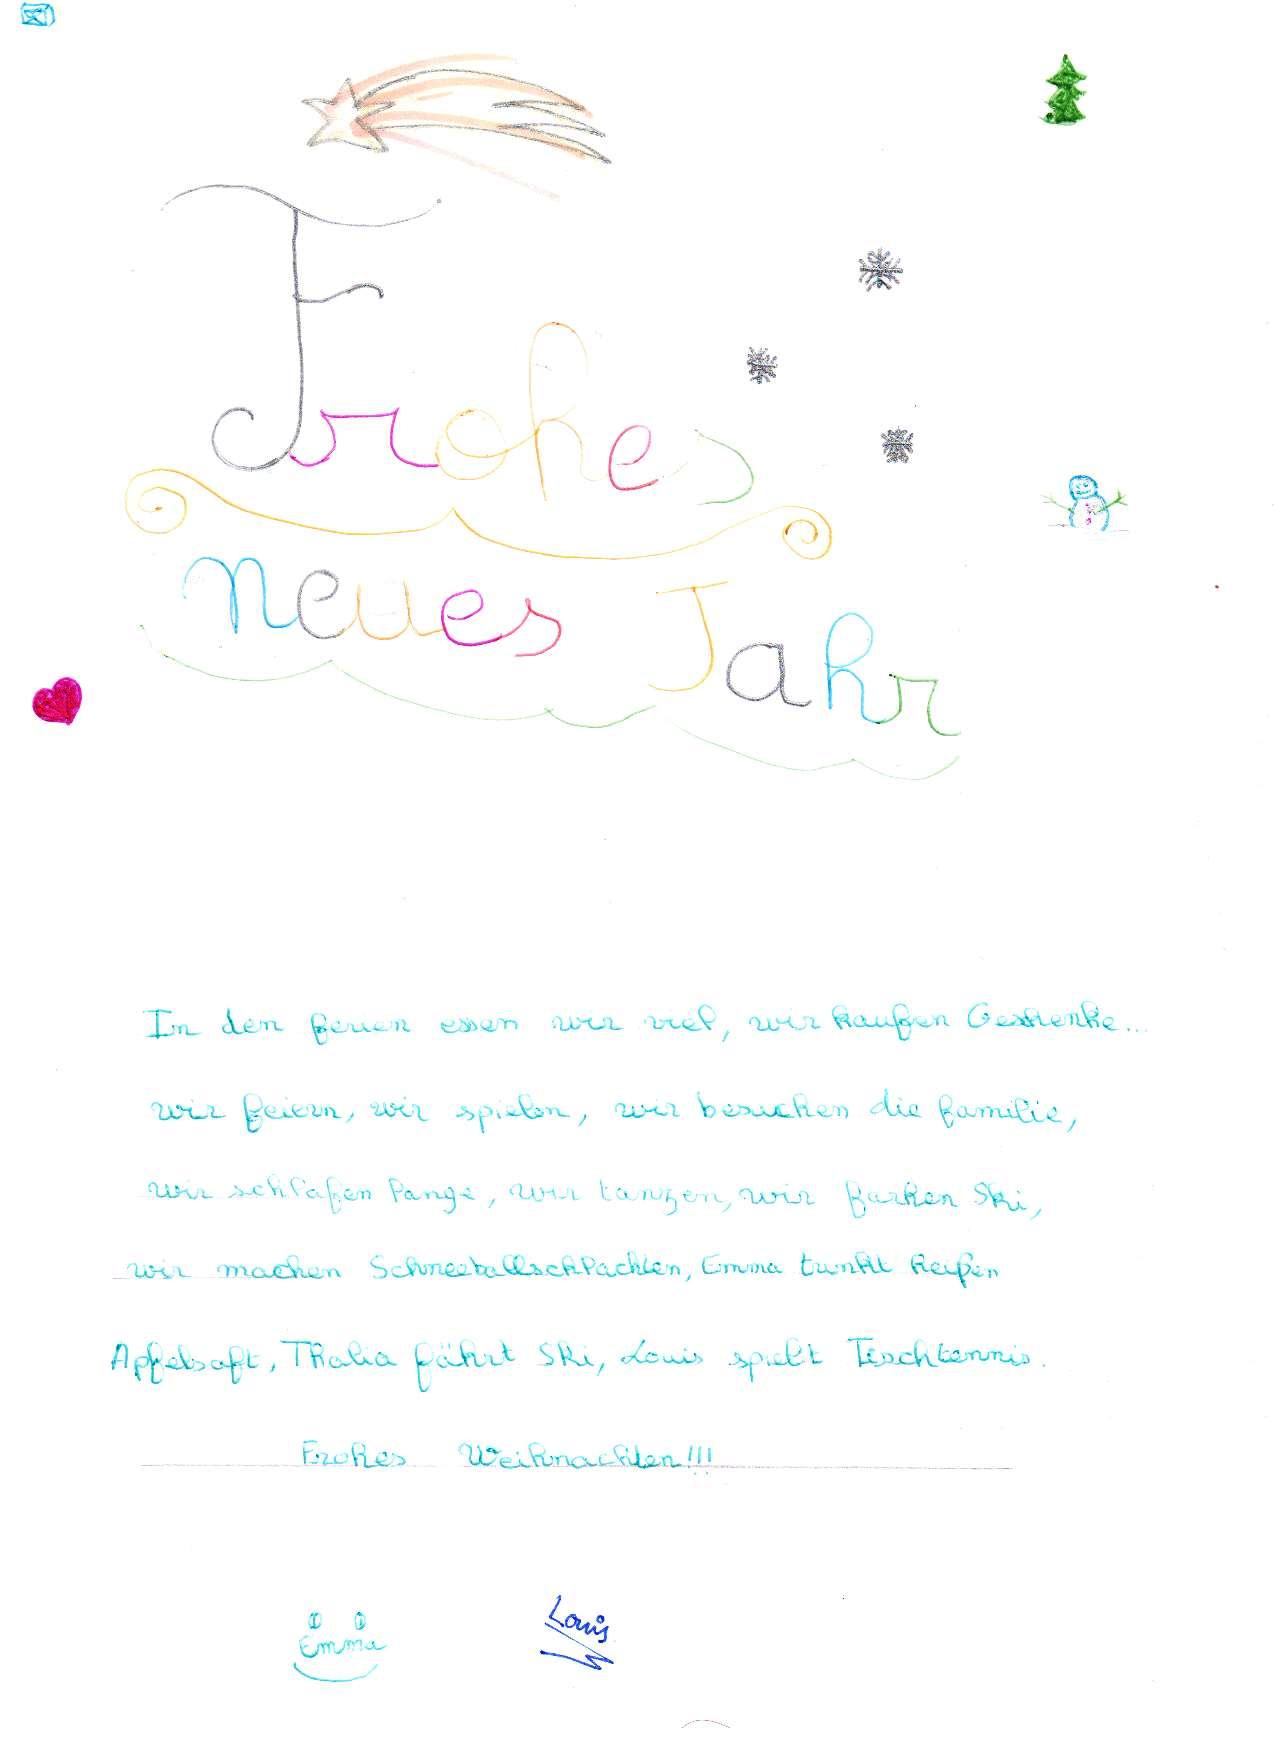 Frohes
neues Jahr
In den ferien essen wir viel, wir kaufen Geschenke...
wir feiern, wir spielen, wir besuchen die familie,
wir schlafen lange, wir tanzen, wir farhen Ski,
wir machen Schneeballschlachten, Emma trinkt heißen
Apfelsaft, Thalia fährt Ski, Louis spielt Tischtennis.
Frohes Weihnachten!!!
Emma Louis